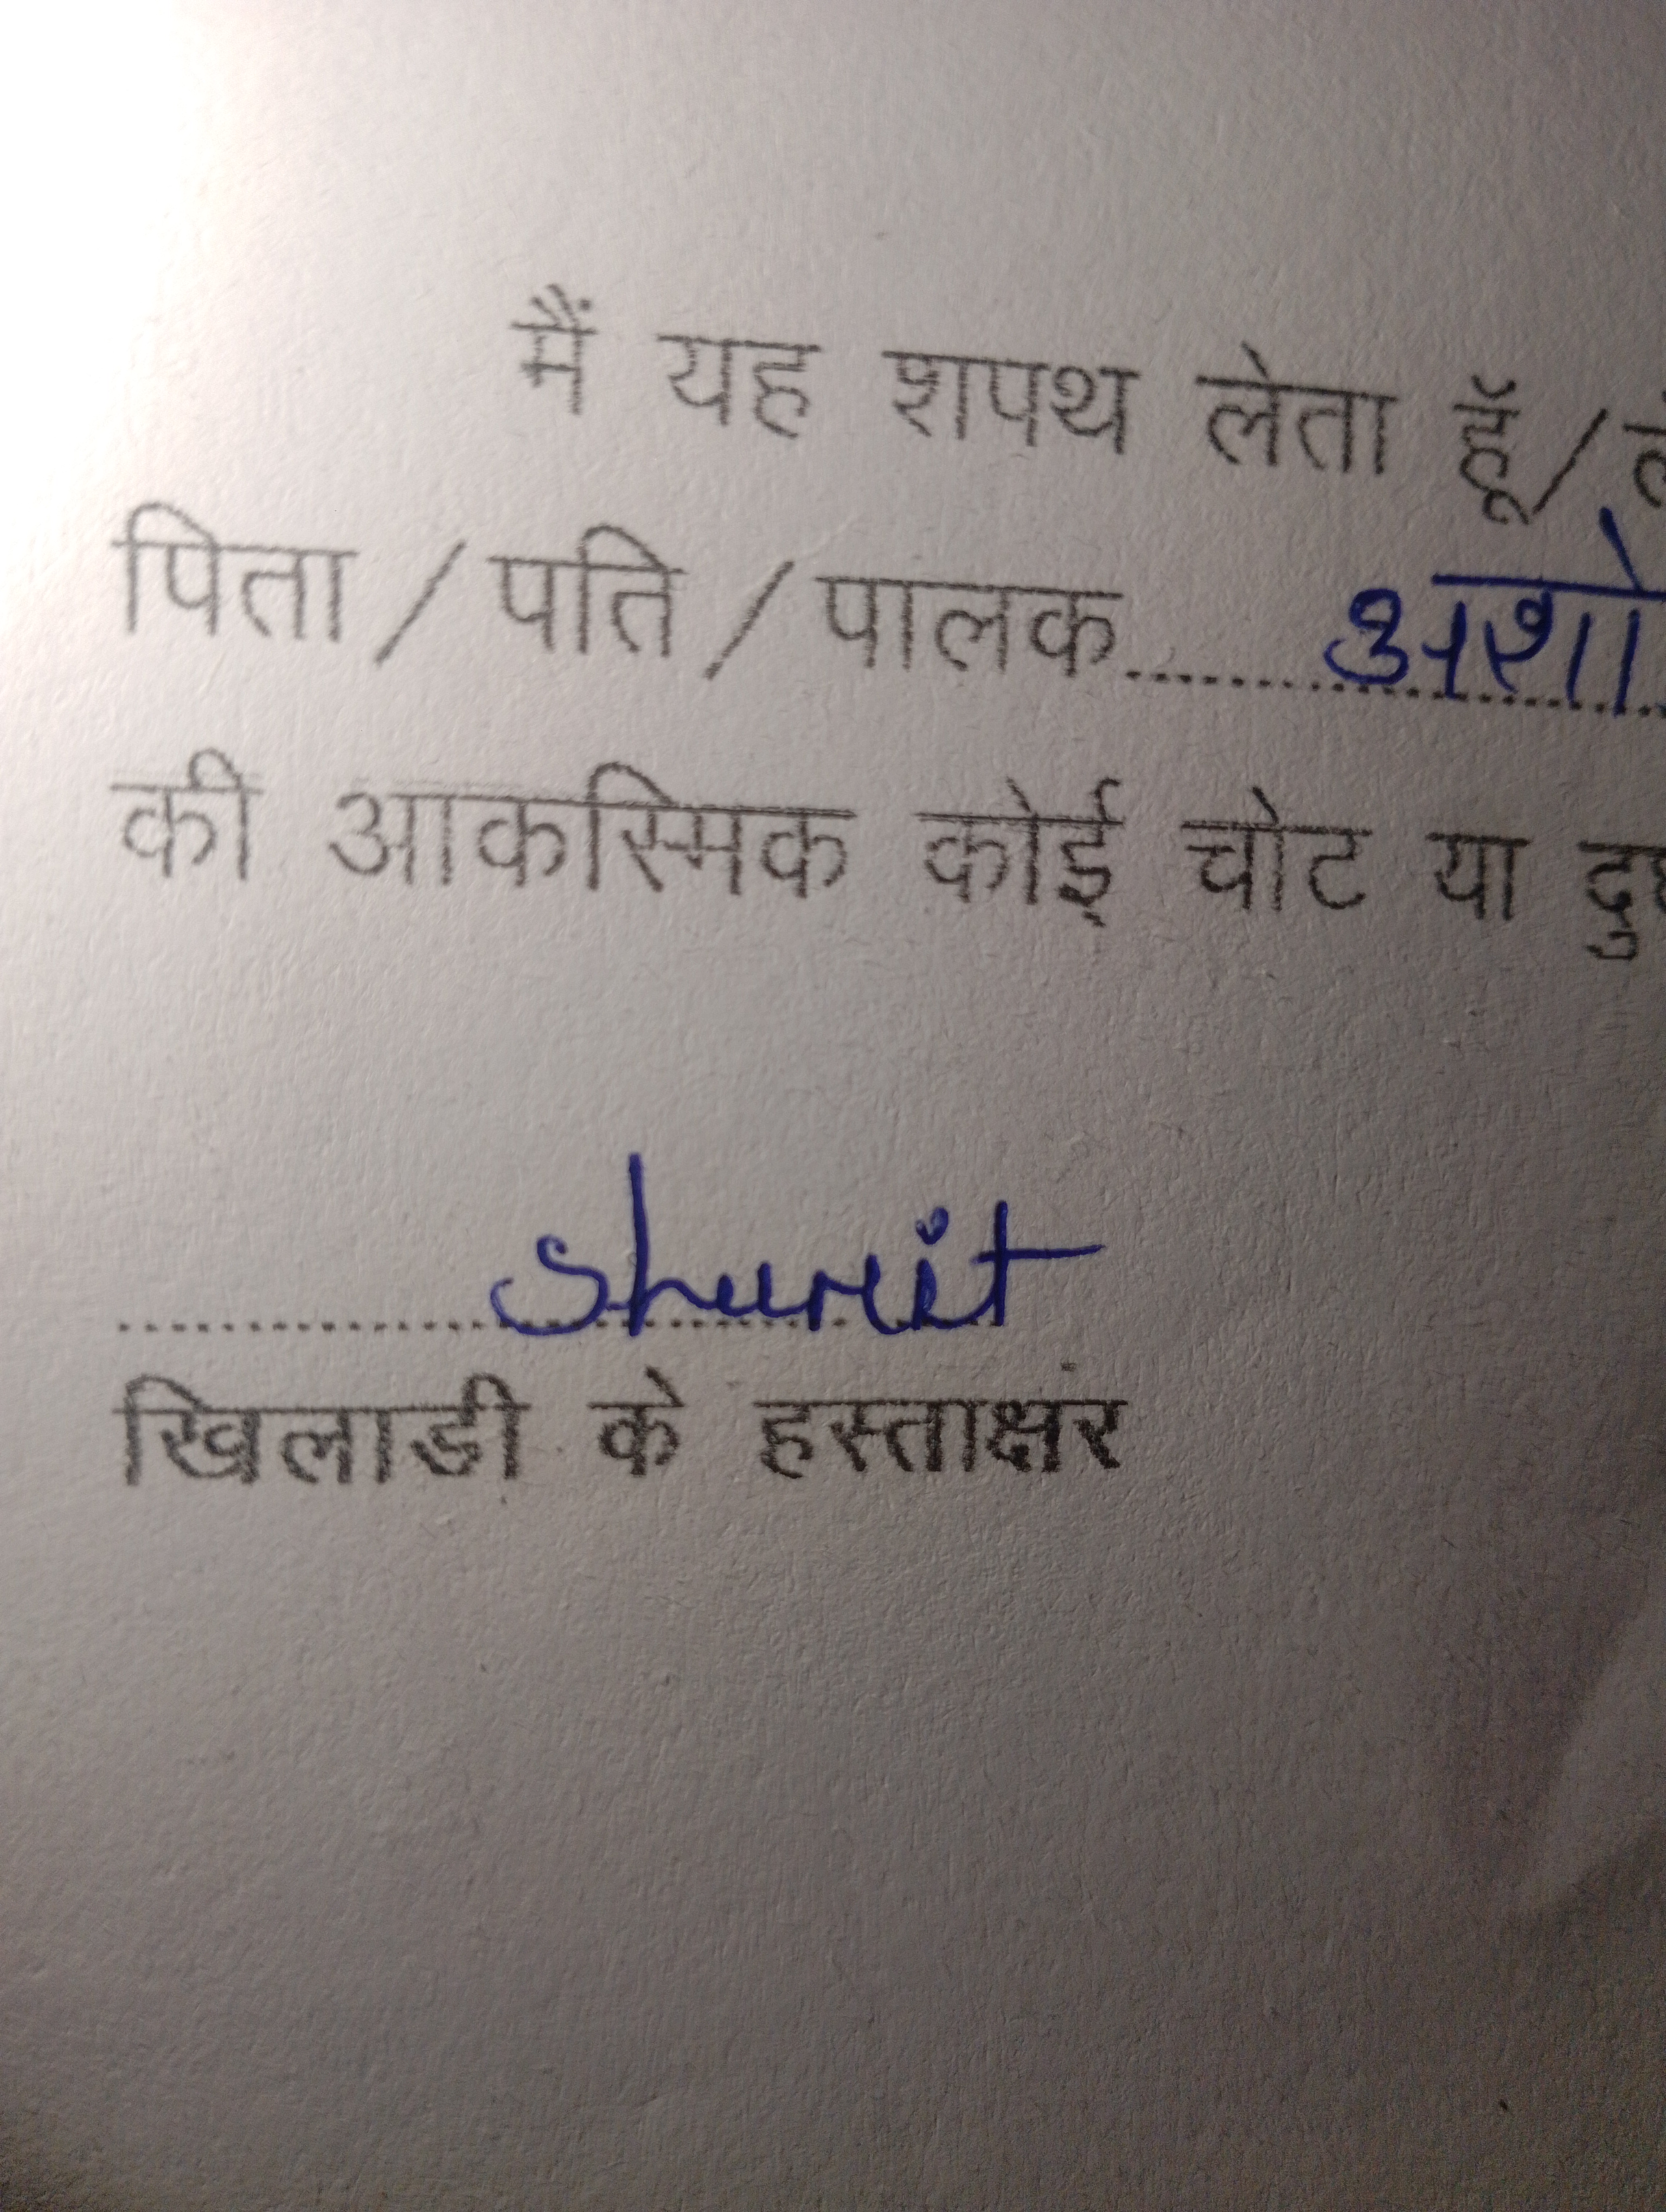 मैं यह शपथ लेता हूॅ/
पिता/पति/पालक.......... अशो
की आकस्मिक कोई चोट या
खिलाडी के हस्ताक्षर